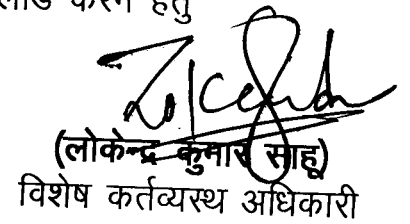 करने हेतु
(लोकेन्द्र कुमार साहू)
विशेष कर्तव्यस्थ अधिकारी